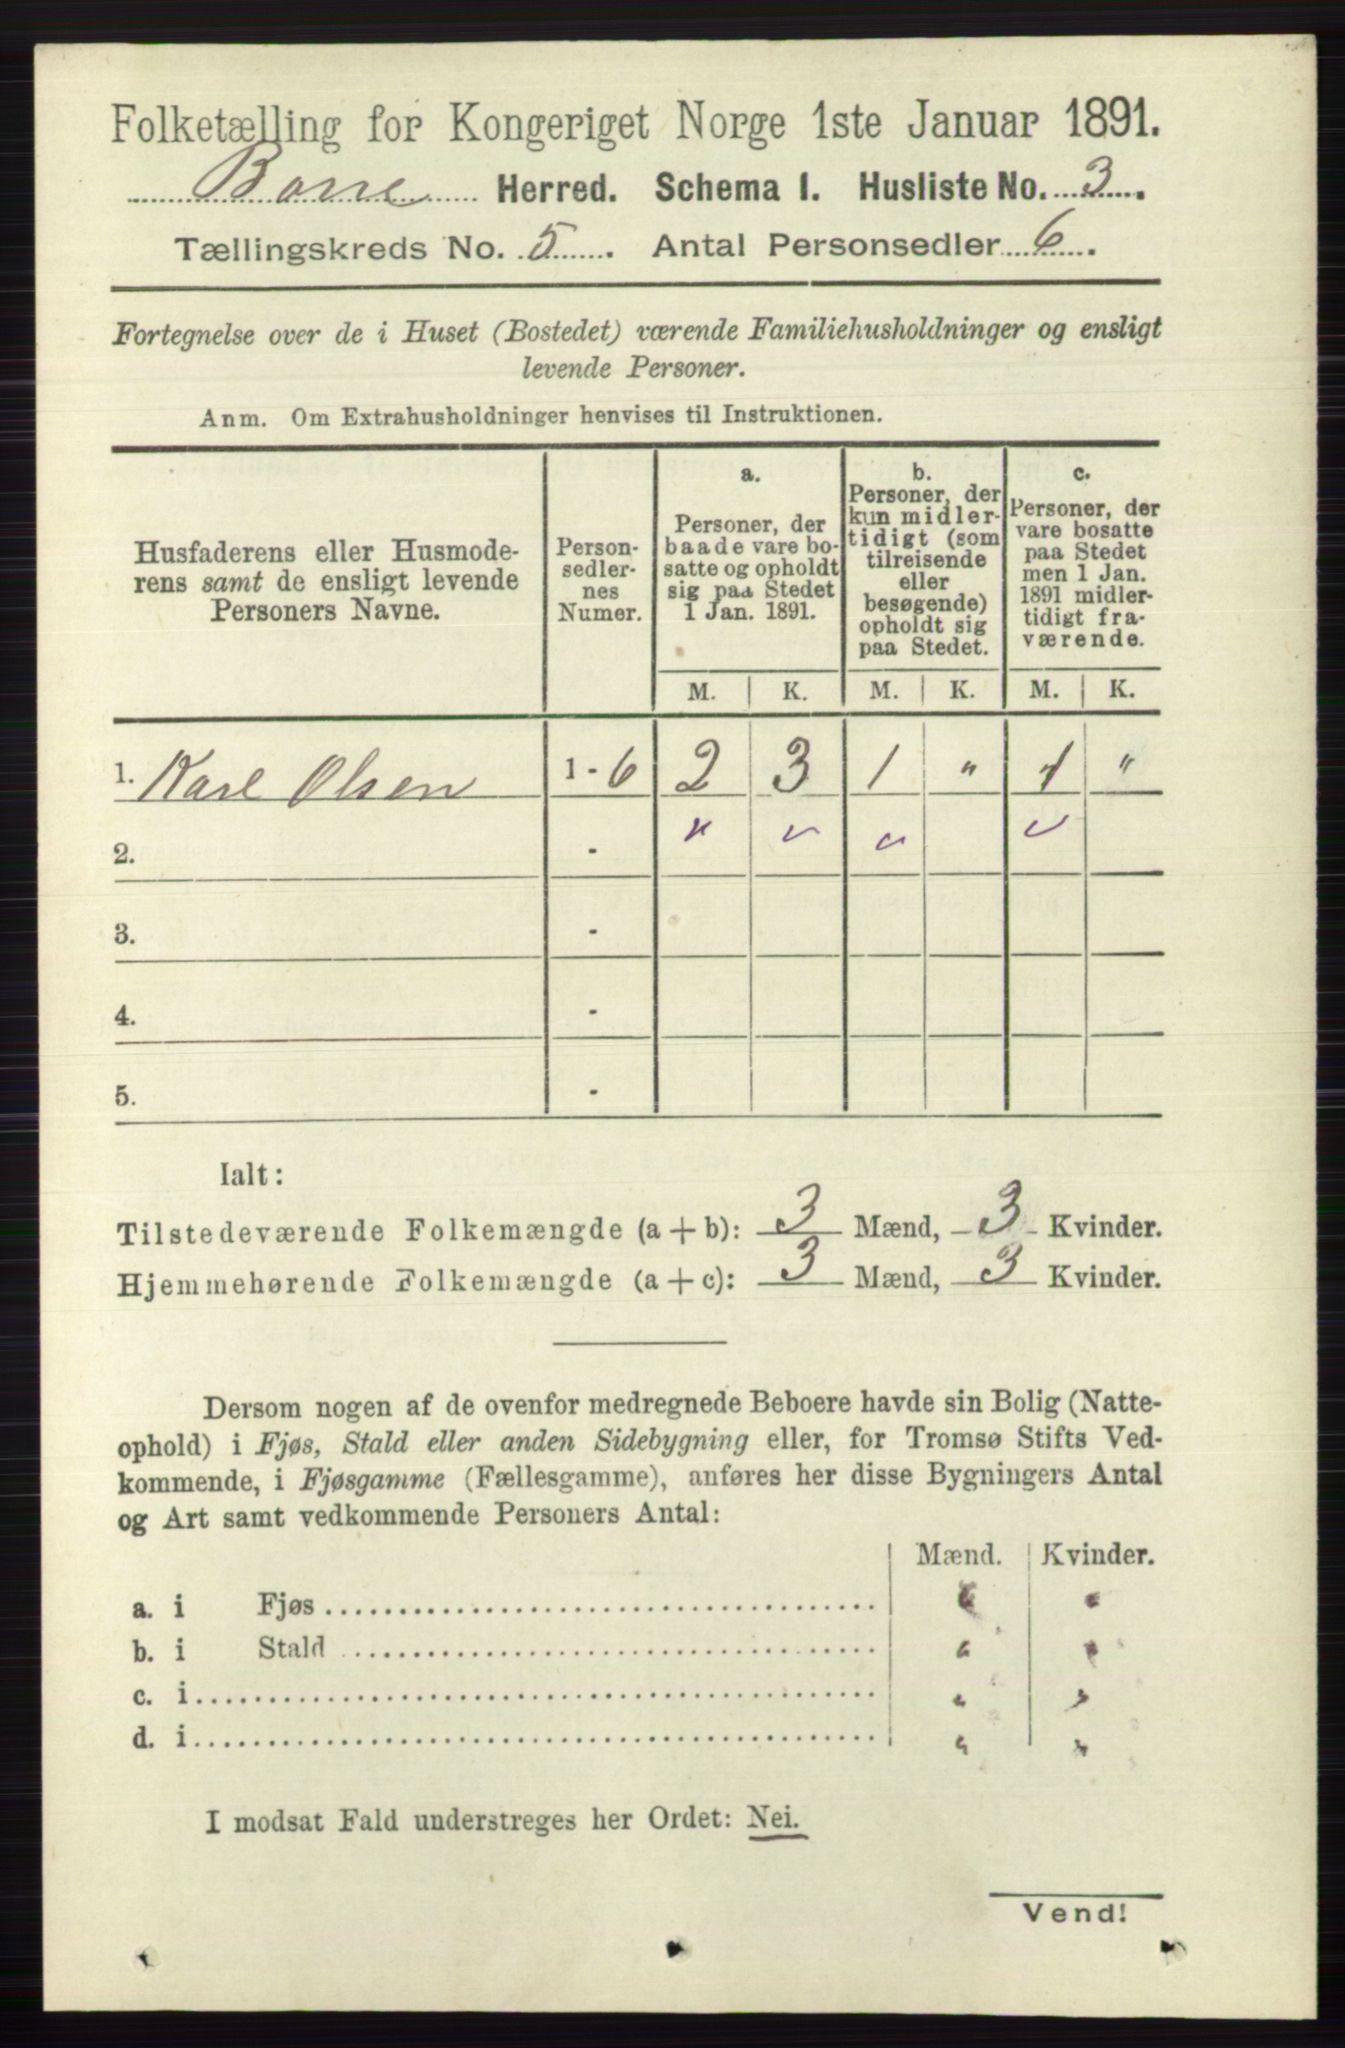 Folketælling for Kongeriget Norge 1ste Januar 1891.
Borre Herred. Schema 1. Husliste No. 3.
Tællingskreds No. 5. Antal Personsedler 6.
Fortegnelse over de i Huset (Bostedet) værende Familiehusholdninger og ensligt
levende Personer.
Anm. Om Extrahusholdninger henvises til Instruktionen.
Husfaderens eller Husmode-
rens samt de ensligt levende
Personers Navne.
Person-
sedler-
nes
Numer.
a.
Personer, der
baade vare bo-
satte og opholdt
sig paa Stedet
1 Jan. 1891.
b.
Personer, der
kun midler-
tidigt (som
tilreisende
eller
besøgende)
opholdt sig
paa Stedet.
c.
Personer, der
vare bosatte
paa Stedet
men 1 Jan.
1891 midler-
tidigt fra-
værende.
M. K. M. K. M. K.
1. Karl Olsen 1 - 6 2 3 1 " 1 "
2. -
3. -
4. -
5. -
Ialt:
Tilstedeværende Folkemængde (a + b): 3 Mænd, 3 Kvinder.
Hjemmehørende Folkemængde (a + c): 3 Mænd, 3 Kvinder.
Dersom nogen af de ovenfor medregnede Beboere havde sin Bolig (Natte-
ophold) i Fjøs, Stald eller anden Sidebygning eller, for Tromsø Stifts Ved-
kommende, i Fjøsgamme (Fællesgamme), anføres her disse Bygningers Antal
og Art samt vedkommende Personers Antal:
Mænd. Kvinder.
a. i Fjøs " "
b. i Stald " "
c. i " "
d. i " "
I modsat Fald understreges her Ordet: Nei.
Vend!